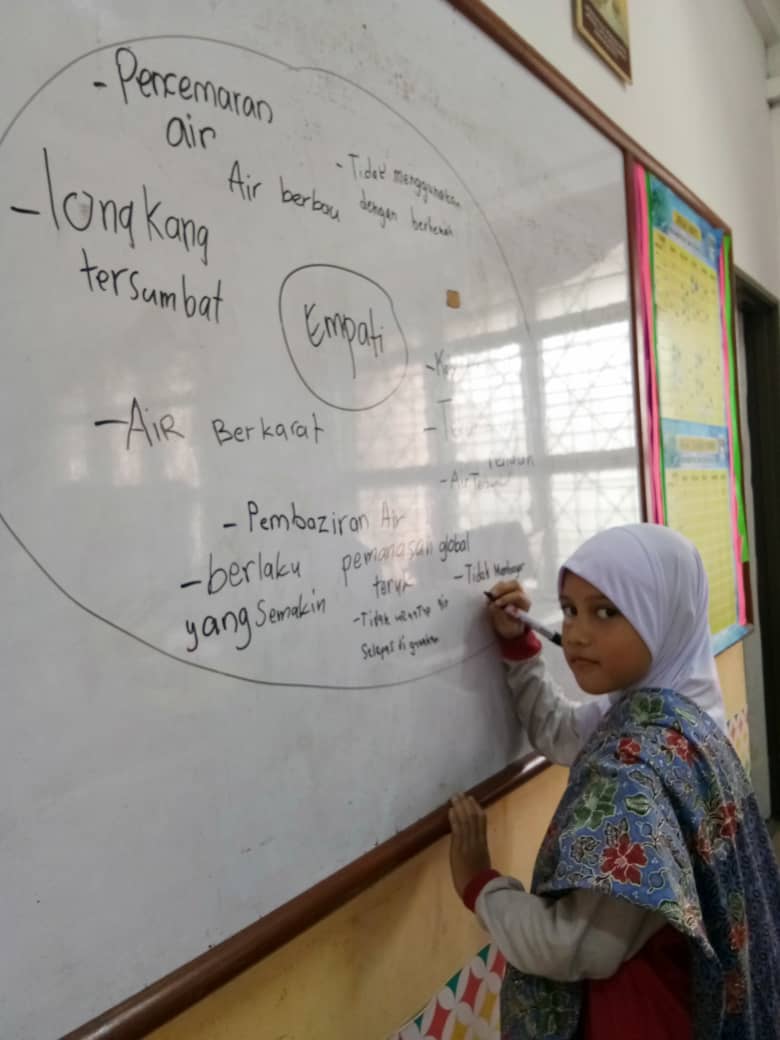 - Pencemaran
air
Air berbau
- Tidak menggunakan
dengan berhemah
- longkang
tersumbat
Empati
- AIR Berkarat
- Air
- Pembaziran Air
- berlaku pemanasan global
yang Semakin teruk
- Tidak
- Tidak menutup air
Selepas di gunakan